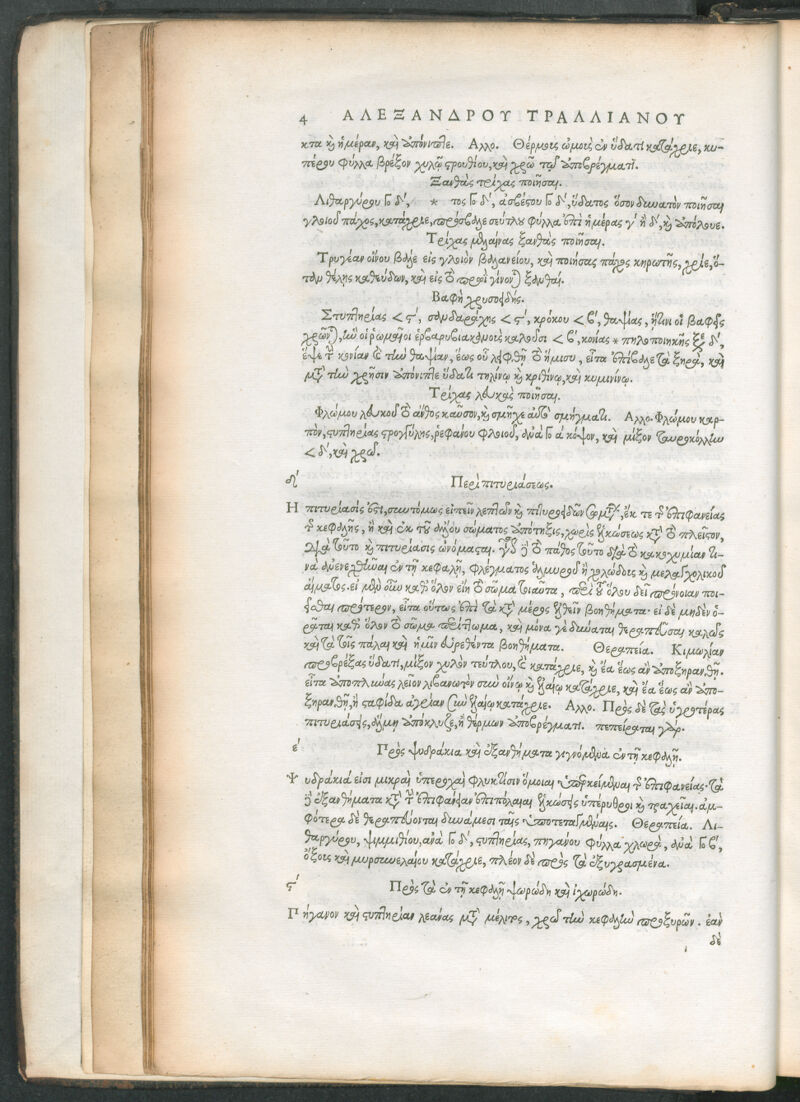 4 ΑΛΕΞΑΝΔΡΟΥ ΤΡΑΛΛΙΑΝΟΥ
κτα καὶ ἡμέραν, καὶ ἀπόνιπτε. Αλλο. Θέρμους ὠμοὺς ἐν ὕδατι κατάχριε, κυ-
πέρου φύλλα βρέξον χυλῷ στρουθίου, καὶ χρῶ τῷ ἀποβρέγματι.
Ξανθὰς τρίχας ποιῆσαι.
Λιθαργύρου Γο δ΄, * τος Γο δ΄, ἀσβέστου Γο δ΄, ὕδατος ὅσον δυνατὸν ποιῆσαι
γλοιοῦ πάχος, κατάχριε, πρόσβαλε σεύτλου φύλλα ἐπὶ ἡμέρας γ΄ ἢ δ΄, καὶ ἀπόλουε.
Τρίχας μελαίνας ξανθὰς ποιῆσαι.
Τρυγέαν οἴνου βάλε εἰς γλοιὸν βαλανείου, καὶ ποιήσας πάχος κηρωτῆς, χρίε, ὅ-
ταν θέλῃς καθεύδων, καὶ εἰς τὸ πρωῒ γίνονται ξανθαί.
Βαφὴ χρυσοειδής.
Στυπτηρίας < ϛ΄, σανδαράχης < ϛ΄, κρόκου < β΄, θαψίας, ᾗτινι οἱ βαφεῖς
χρῶνται, ἣν οἱ ῥωμαῖοι ἑρβαρυβιακαμοὺς καλοῦσι < β΄, κονίας * πηλοποιηκῆς ξε δ΄,
ἕψε τὴν κονίαν καὶ τὴν θαψίαν, ἕως οὗ λειφθῇ τὸ ἥμισυ, εἶτα ἐπίβαλε τὰ ξηρὰ, καὶ
μετὰ τὴν χρῆσιν ἀπόνιπτε ὕδατι τηλίνῳ καὶ κριθίνῳ, καὶ κυμινίνῳ.
Τρίχας λευκὰς ποιῆσαι.
Φλώμου λευκοῦ τὸ ἄνθος καῦσον, καὶ σμῆχε αὐτὸ σμήγματι. Αλλο. Φλώμου καρ-
πὸν, στυπτηρίας στρογγύλης, ῥεφάνου φλοιοῦ, ἀνὰ Γο α κόψον, καὶ μίξον ταυροκόλλαν
< δ΄, καὶ χρῶ.
δ΄ Περὶ πιτυριάσεως.
Η πιτυρίασίς ἐστι, συντόμως εἰπεῖν λεπτῶν καὶ πιτυροειδῶν σωμάτων, ἔκ τε τῆς ἐπιφανείας
τῆς κεφαλῆς, ἢ καὶ ἐκ τοῦ ἄλλου σώματος ἀπότηξις, χωρὶς ἑλκώσεως κατὰ τὸ πλεῖστον,
διὰ τοῦτο καὶ πιτυρίασις ὠνόμασται. γίνεται δὲ τὸ πάθος τοῦτο διὰ τὸ κακοχυμίαν τι-
νὰ ἀνενεχθῆναι ἐν τῇ κεφαλῇ, φλέγματος ἁλμυροῦ ἢ χολώδους καὶ μελαγχολικοῦ
αἵματος. εἰ μὲν οὖν καθ᾽ ὅλον εἴη τὸ σῶμα τοιαῦτα, περὶ τοῦ ὅλου δεῖ πρόνοιαν ποι-
εῖσθαι πρότερον, εἶτα οὕτως ἐπὶ τὰ κατὰ μέρος ἐλθεῖν βοηθήματα· εἰ δὲ μηδὲν ὁ-
ρᾶται καθ᾽ ὅλον τὸ σῶμα περίττωμα, καὶ μόνα γε δύναται θεραπεῦσαι καλῶς
καὶ τὰ τοῖς πάλαι καὶ ἡμῖν εὑρεθέντα βοηθήματα. Θεραπεία. Κιμωλίαν
προβρέξας ὕδατι, μίξον χυλὸν τεύτλου, καὶ κατάχριε, καὶ ἔα ἕως ἂν ἀποξηρανθῇ.
εἶτα ἀποπλύνας λεῖον λιβανωτὸν σὺν οἴνῳ καὶ ἐλαίῳ κατάχριε, καὶ ἔα ἕως ἂν ἀπο-
ξηρανθῇ, ἢ σταφίδα ἀγρίαν σὺν ἐλαίῳ κατάχριε. Αλλο. Πρὸς δὲ τὰς ὑγροτέρας
πιτυριάσεις, ἅλμῃ ἀπόκλυζε, ἢ θέρμων ἀποβρέγματι. πεπείραται γάρ.
ε΄ Πρὸς ψυδράκια καὶ ἐξανθήματα γιγνόμενα ἐν τῇ κεφαλῇ.
Ψυδράκιά εἰσι μικραὶ ὑπεροχαὶ φλυκτίσιν ὅμοιαι ὑπερκείμεναι τῆς ἐπιφανείας· τὰ
δὲ ἐξανθήματα κατὰ τὴν ἐπιφάνειαν ἐπιπόλαιαι ἑλκώσεις ὑπέρυθροι καὶ τραχεῖαι. ἀμ-
φότερα δὲ θεραπεύονται δυνάμεσι ταῖς ὑποτεταγμέναις. Θεραπεία. Λι-
θαργύρου, ψιμμιθίου, ἀνὰ Γο δ΄, στυπτηρίας, πηγάνου φύλλα χλωρὰ, ἀνὰ Γο β΄,
ὄξους καὶ μυρσινελαίου κατάχριε, πλέον δὲ πρὸς τὰ ἐξυγρασμένα.
ϛ΄ Πρὸς τὰ ἐν τῇ κεφαλῇ ψωρώδη καὶ ἰχωρώδη.
Πήγανον καὶ στυπτηρίαν λεάνας μετὰ μέλιτος, χρῶ τὴν κεφαλὴν προξυρῶν. ἐὰν
δὲ